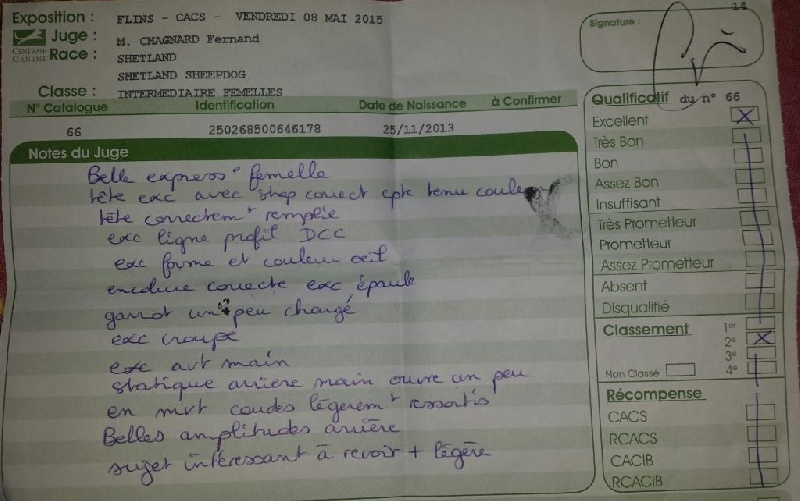 14
Exposition : FLINS - CACS - VENDREDI 08 MAI 2015
Signature :
Juge : M. CHAGNARD Fernand
CENTRALE CANINE
Race : SHETLAND
SHETLAND SHEEPDOG
Classe : INTERMEDIAIRE FEMELLES
N° Catalogue Identification Date de Naissance à Confirmer
66 250268500646178 25/11/2013
Notes du Juge
Belle express° femelle
tête exc avec stop correct cpte tenu couleur
tête correctemt remplie
exc ligne profil DCC
exc forme et couleur oeil
encolure correcte exc épaule
garrot un peu chargé
exc croupe
exc avt main
statique arrière main ouvre un peu
en mvt coudes légèremt ressortis
Belles amplitudes arrière
sujet intéressant à revoir + légère
Qualificatif du n° 66
Excellent X
Très Bon
Bon
Assez Bon
Insuffisant
Très Prometteur
Prometteur
Assez Prometteur
Absent
Disqualifié
Classement 1e
2e X
3e
Non Classé 4e
Récompense
CACS
RCACS
CACIB
RCACIB